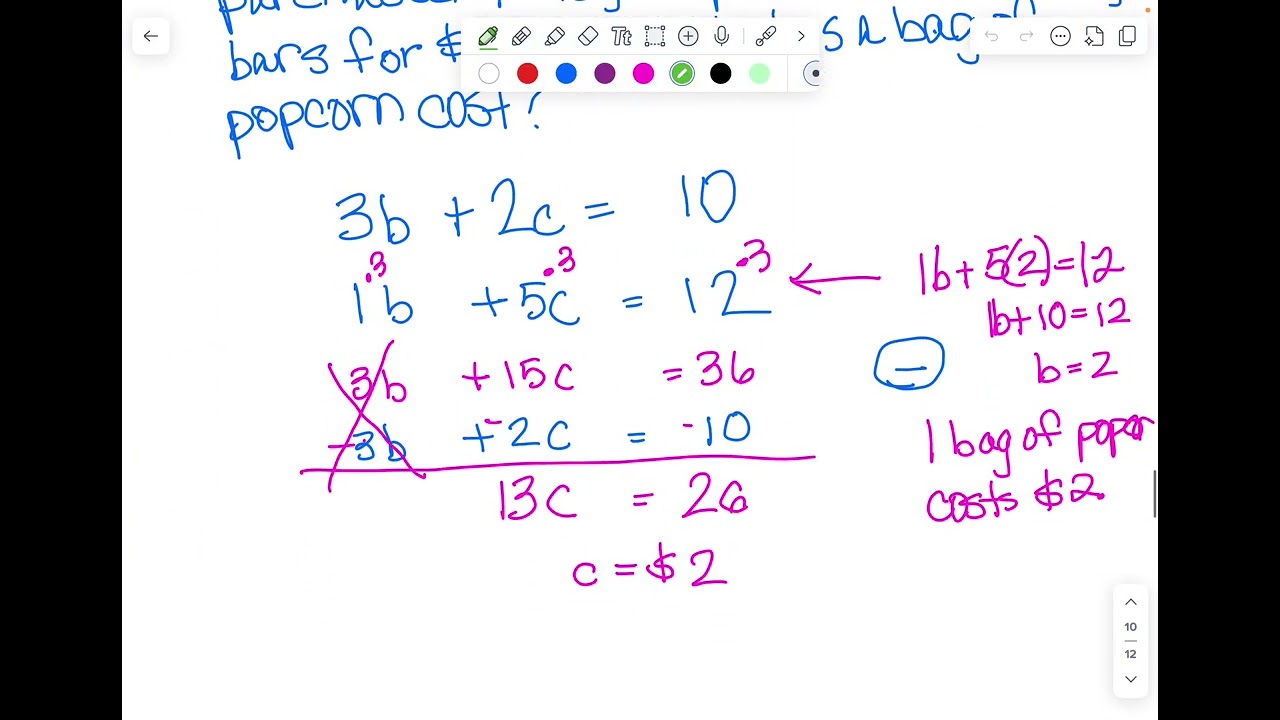 bars for $ s a bag of
popcorn cost?
3b + 2c = 10
.3 .3 .3
1b + 5c = 12
3b + 15c = 36
-3b + -2c = -10
13c = 26
c = $2
1b + 5(2) = 12
1b + 10 = 12
−
b = 2
1 bag of popcor
costs $2
Tt
10
12